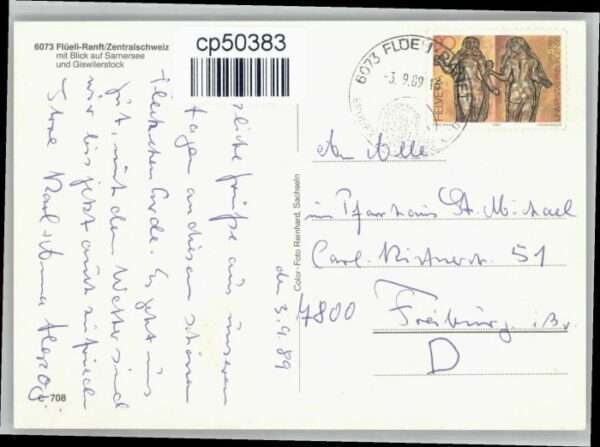 6073 Flüeli-Ranft/Zentralschweiz
mit Blick auf Sarnersee
und Giswilerstock
cp50383
6073 FLÜELI
-3.9.89
HELVETIA
den 3.9.89
Grüße aus unseren
Tagen an diesem schönen
Fleckchen Erde. Es geht uns
gut, mit dem Wetter sind
wir bis jetzt auch zufrieden
Ihre Karl + Anna Herzog
708
Color-Foto Reinhard, Sachseln
An Alle
im Pfarrhaus St. Michael
Carl-Kistnerstr. 51
7800 Freiburg i. Br.
D